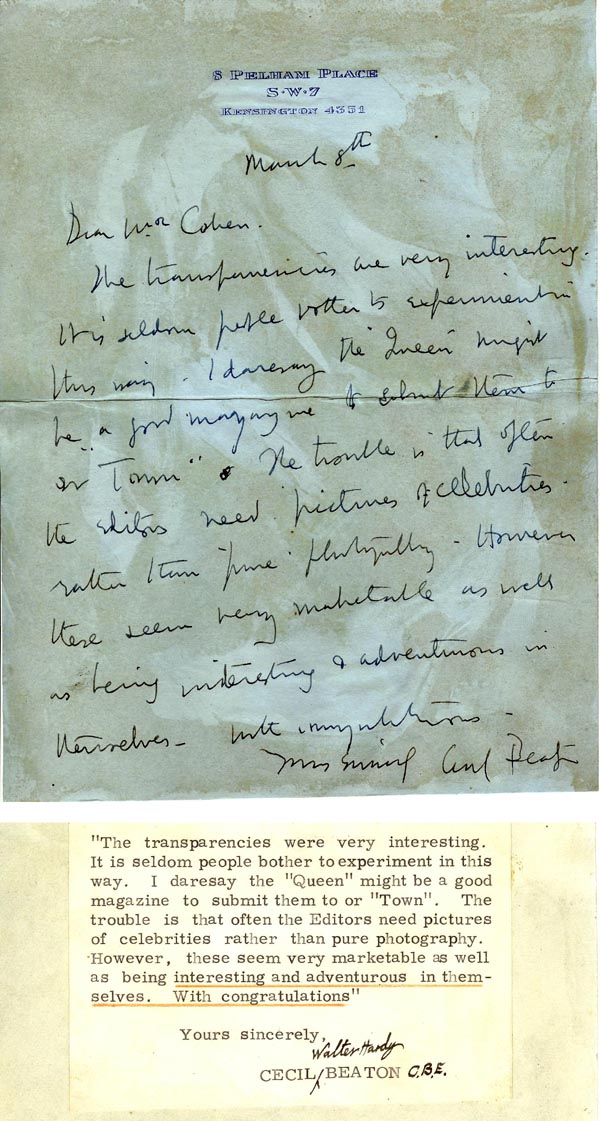 8 PELHAM PLACE
S·W·7
KENSINGTON 4331
March 8th
Dear Mr Cohen.
The transparencies are very interesting.
It is seldom people bother to experiment in
this way. I daresay the "Queen" might
be a good magazine to submit them to
or "Town". The trouble is that often
the editors need pictures of celebrities
rather than pure photography. However
these seem very marketable as well
as being interesting & adventurous in
themselves – with congratulations –
Yours sincerely Cecil Beaton
"The transparencies were very interesting.
It is seldom people bother to experiment in this
way. I daresay the "Queen" might be a good
magazine to submit them to or "Town". The
trouble is that often the Editors need pictures
of celebrities rather than pure photography.
However, these seem very marketable as well
as being interesting and adventurous in them-
selves. With congratulations"
Yours sincerely,
Walter Hardy
CECIL BEATON C.B.E.